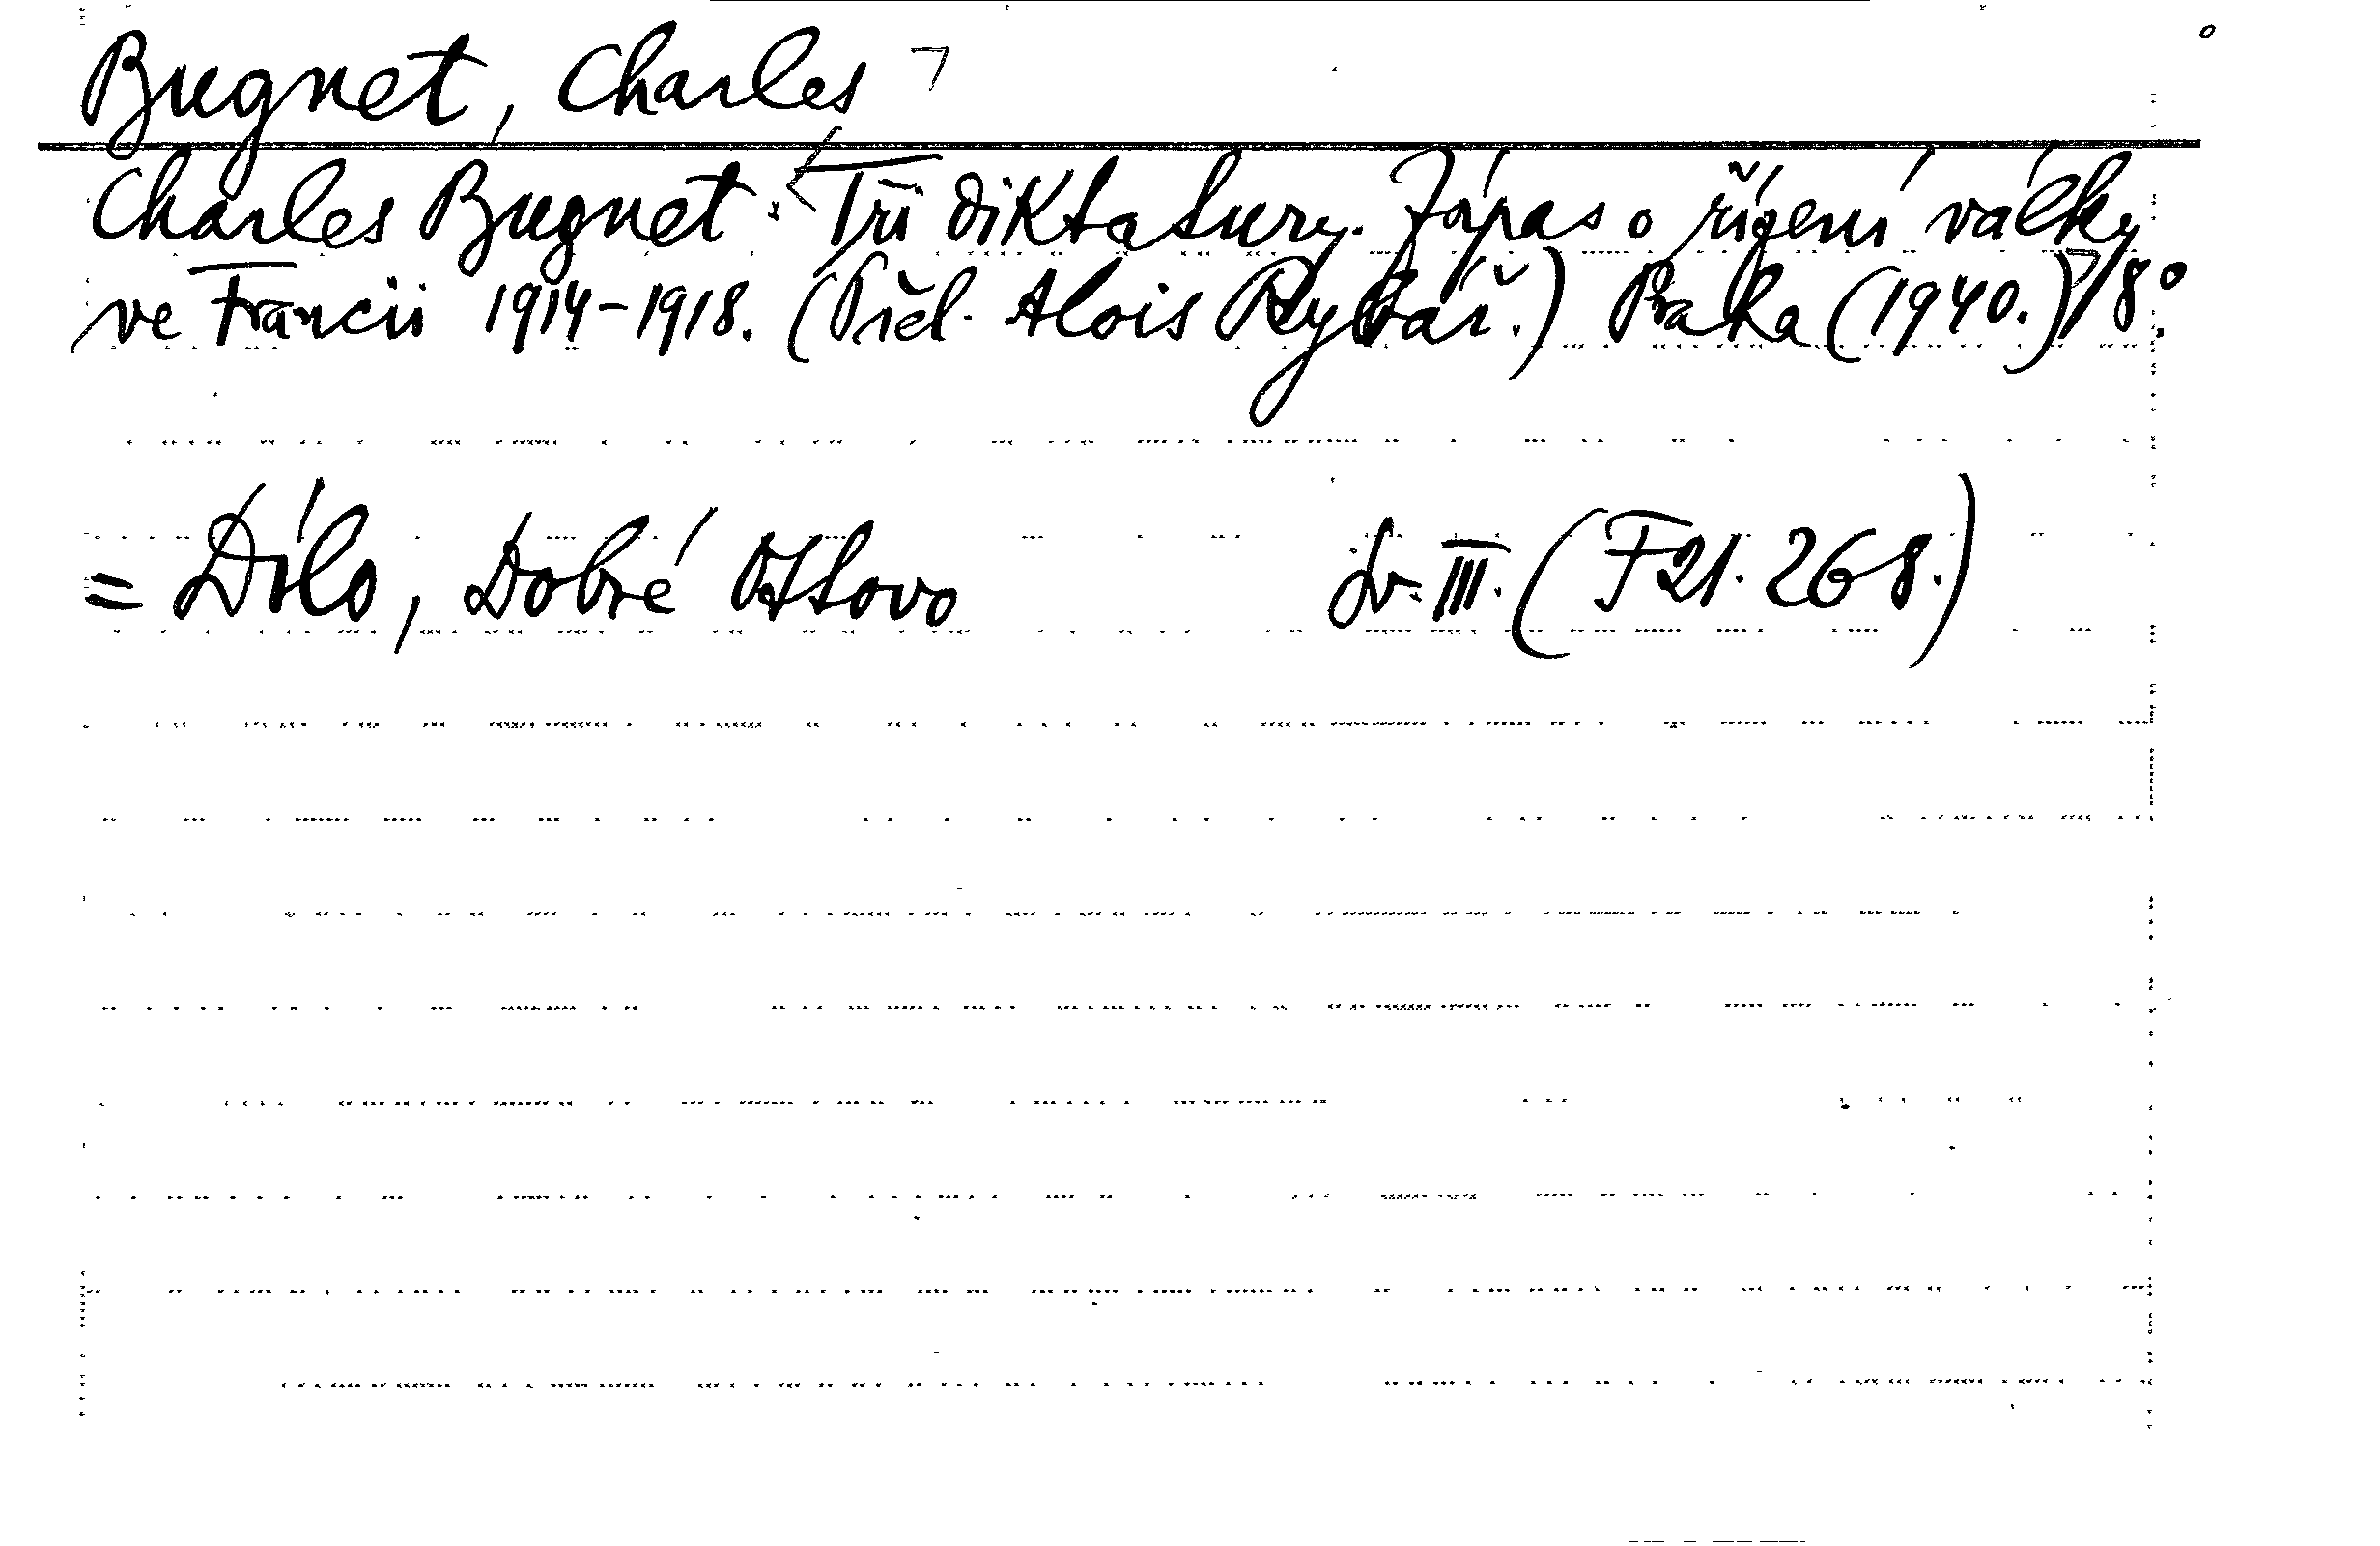 Bugnet, Charles
Charles Bugnet: Tři diktatury. Zápas o řízení války
ve Francii 1914-1918. (Přel. Alois Rybář.) Praha (1940.) 8°.
= Dílo, Dobré Slovo sv. III. (F21.268.)